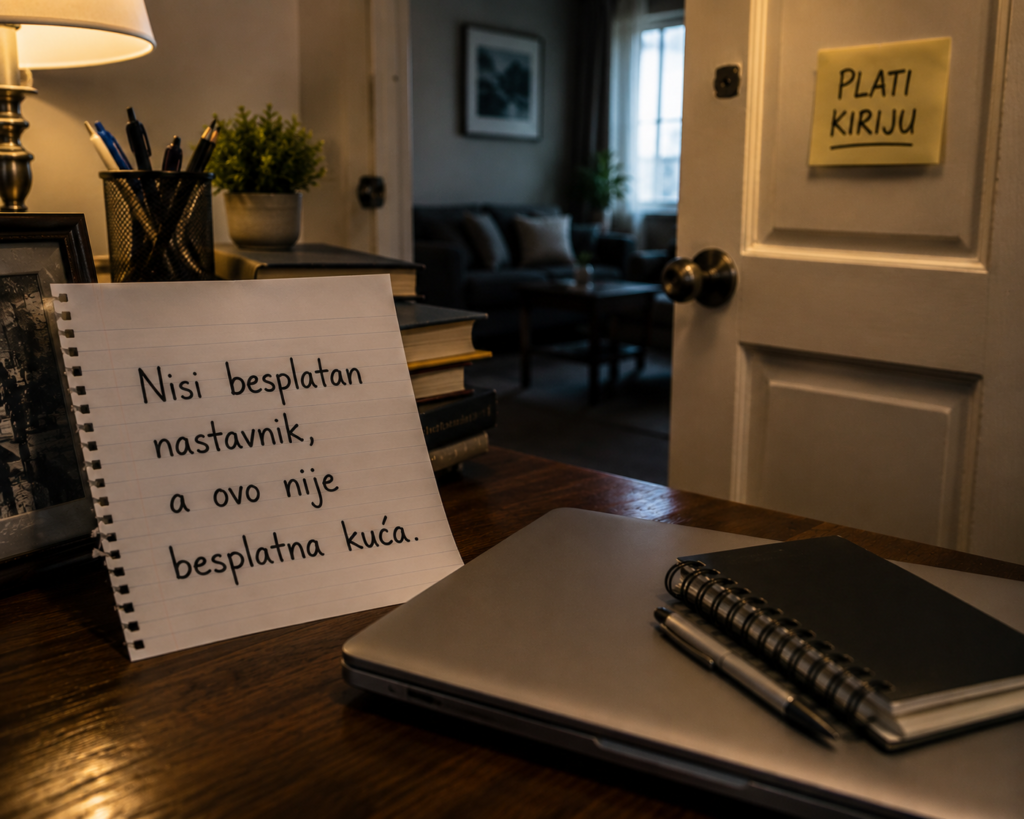 Nisi besplatan
nastavnik,
a ovo nije
besplatna kuća.
PLATI
KIRIJU